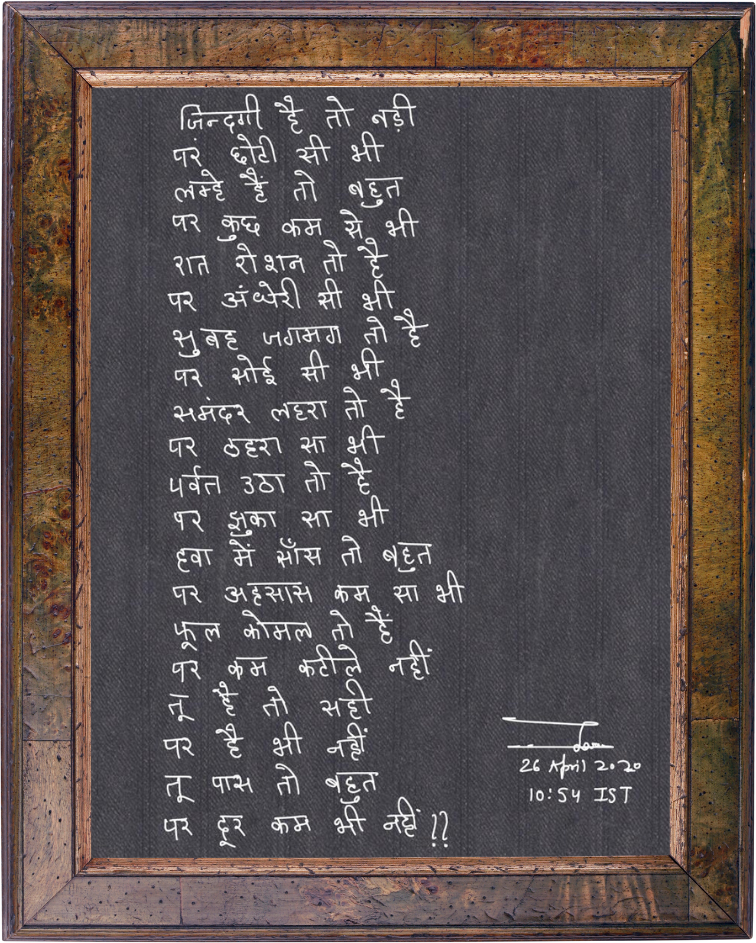 जिन्दगी है तो बड़ी
पर छोटी सी भी
लम्हे हैं तो बहुत
पर कुछ कम से भी
रात रोशन तो है
पर अंधेरी सी भी
सुबह जगमग तो है
पर सोई सी भी
समंदर लहरा तो है
पर ठहरा सा भी
पर्वत उठा तो है
पर झुका सा भी
हवा में साँस तो बहुत
पर अहसास कम सा भी
फूल कोमल तो हैं
पर कम कटीले नहीं
तू है तो सही
पर है भी नहीं
तू पास तो बहुत
पर दूर कम भी नहीं !?
26 April 2020
10:54 IST